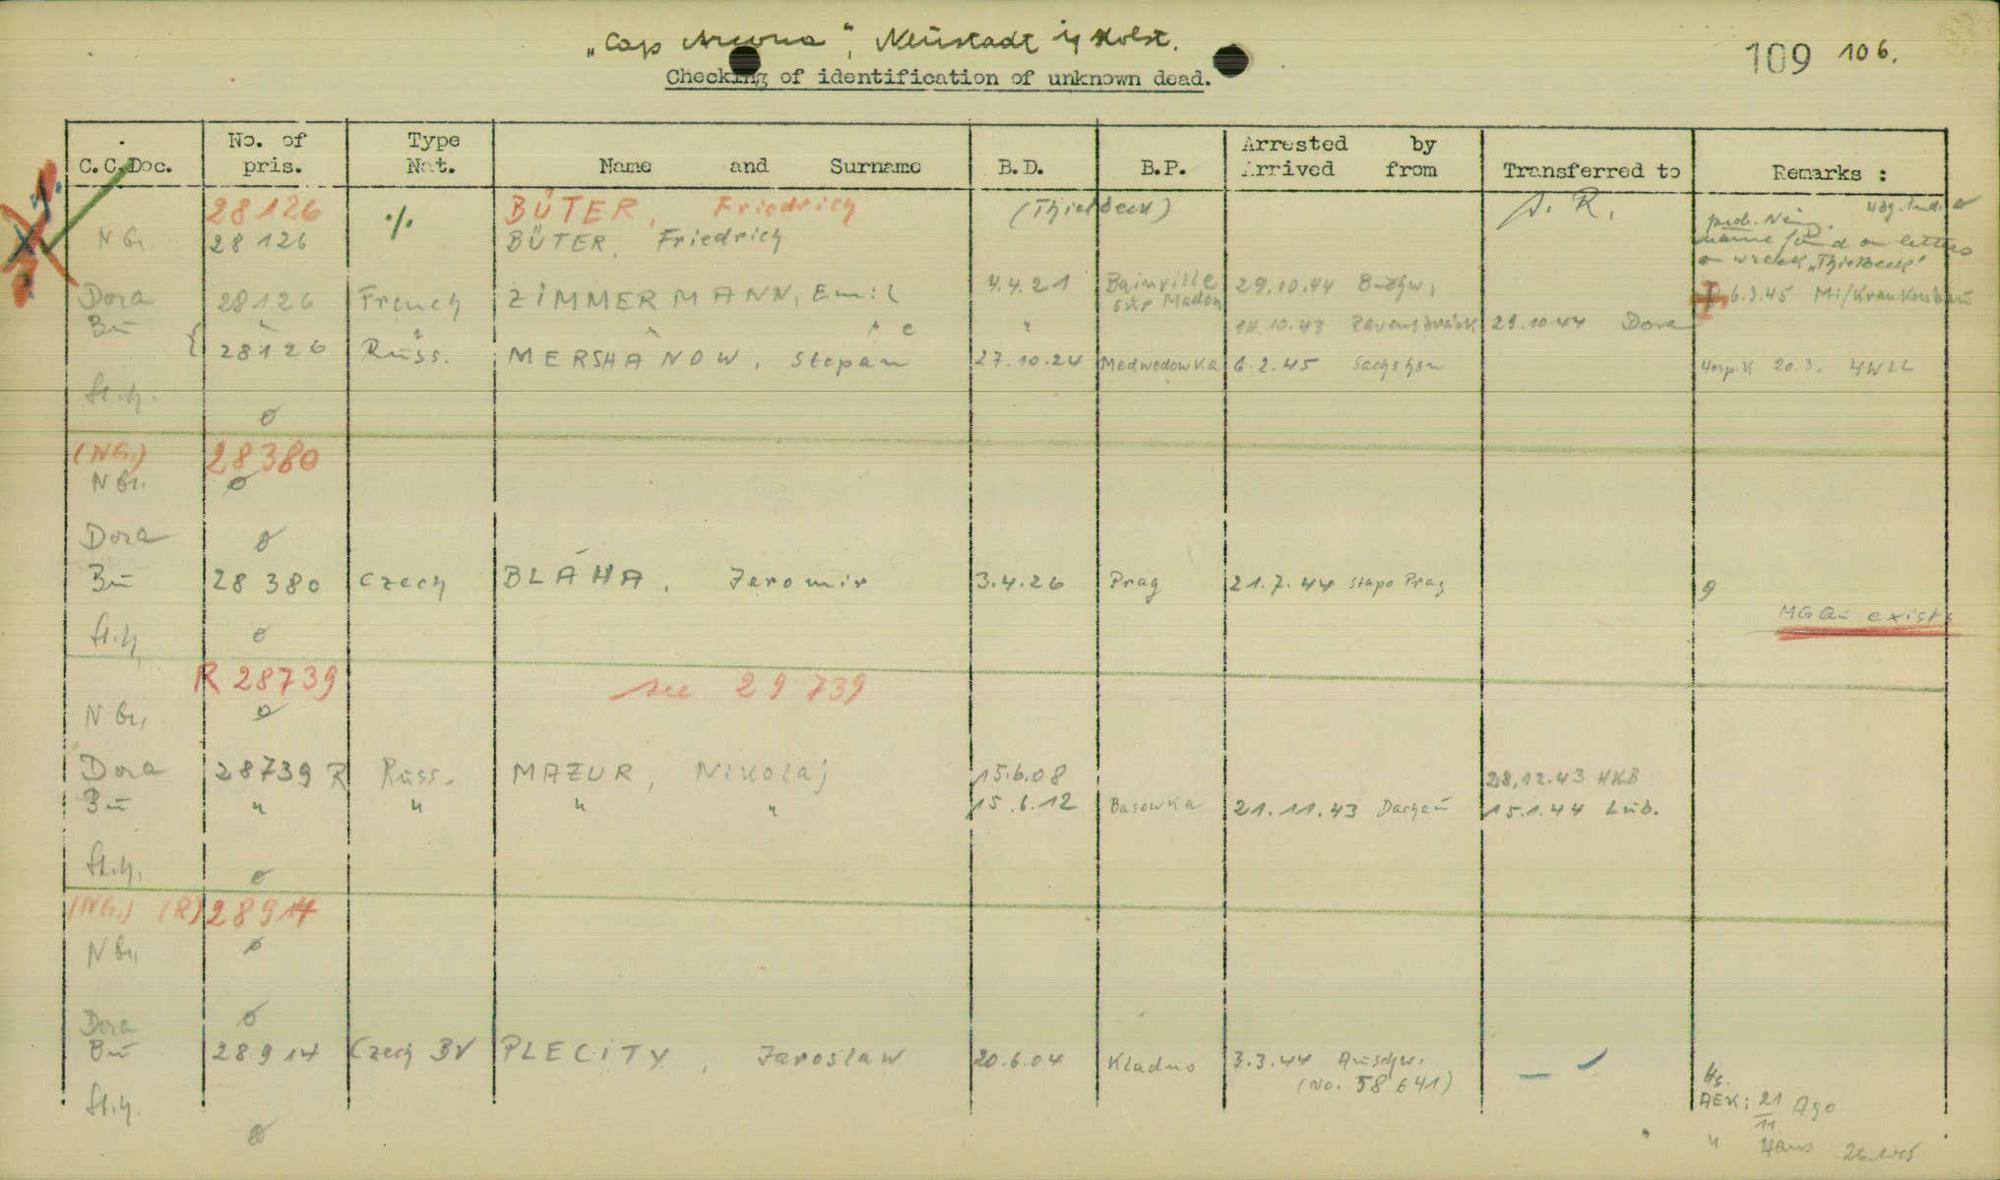 „Cap Arcona", Neustadt i/ Holst.
109 106.
Checking of identification of unknown dead.
C.C.Doc. No. of pris. Type Nat. Name and Surname B.D. B.P. Arrested by Arrived from Transferred to Remarks :
28126 BÜTER, Friedrich (Thielbeck)
N G. 28 126 % BÜTER, Friedrich
name found on letters
on wreck „Thielbeck"
Dora 28126 French ZIMMERMANN, Emil 4.4.21 Bainville s/r Madon 29.10.44 Buchw. 6.3.45 Mi/Krankenbau
Bu " " " e " 14.10.43 Ravensbrück 29.10.44 Dora
28126 Russ. MERSHANOW, Stepan 27.10.24 Medwedowka 6.2.45 Sachshsn Hosp.K 20.3.
St.h. ø
(NG.) 28380
N G. ø
Dora ø
Bu 28 380 Czech BLÁHA, Jaromir 3.4.26 Prag 21.7.44 Stapo Prag
MGAu exists
St.h. ø
R 28739 see 29 739
N G. ø
Dora 28739 R Russ. MAZUR, Nikolaj 15.6.08 28.12.43 HKB
Bu " " " " 15.6.12 Basowka 21.11.43 Dachau 15.1.44 Lub.
St.h. ø
(NG.) (R) 28914
N G. ø
Dora ø
Bu 28914 Czech BV PLECITY, Jaroslaw 20.6.04 Kladno 3.3.44 Auschw.
(No. 58641)
St.h. AEK: 21/11 Ago
ø " Hans